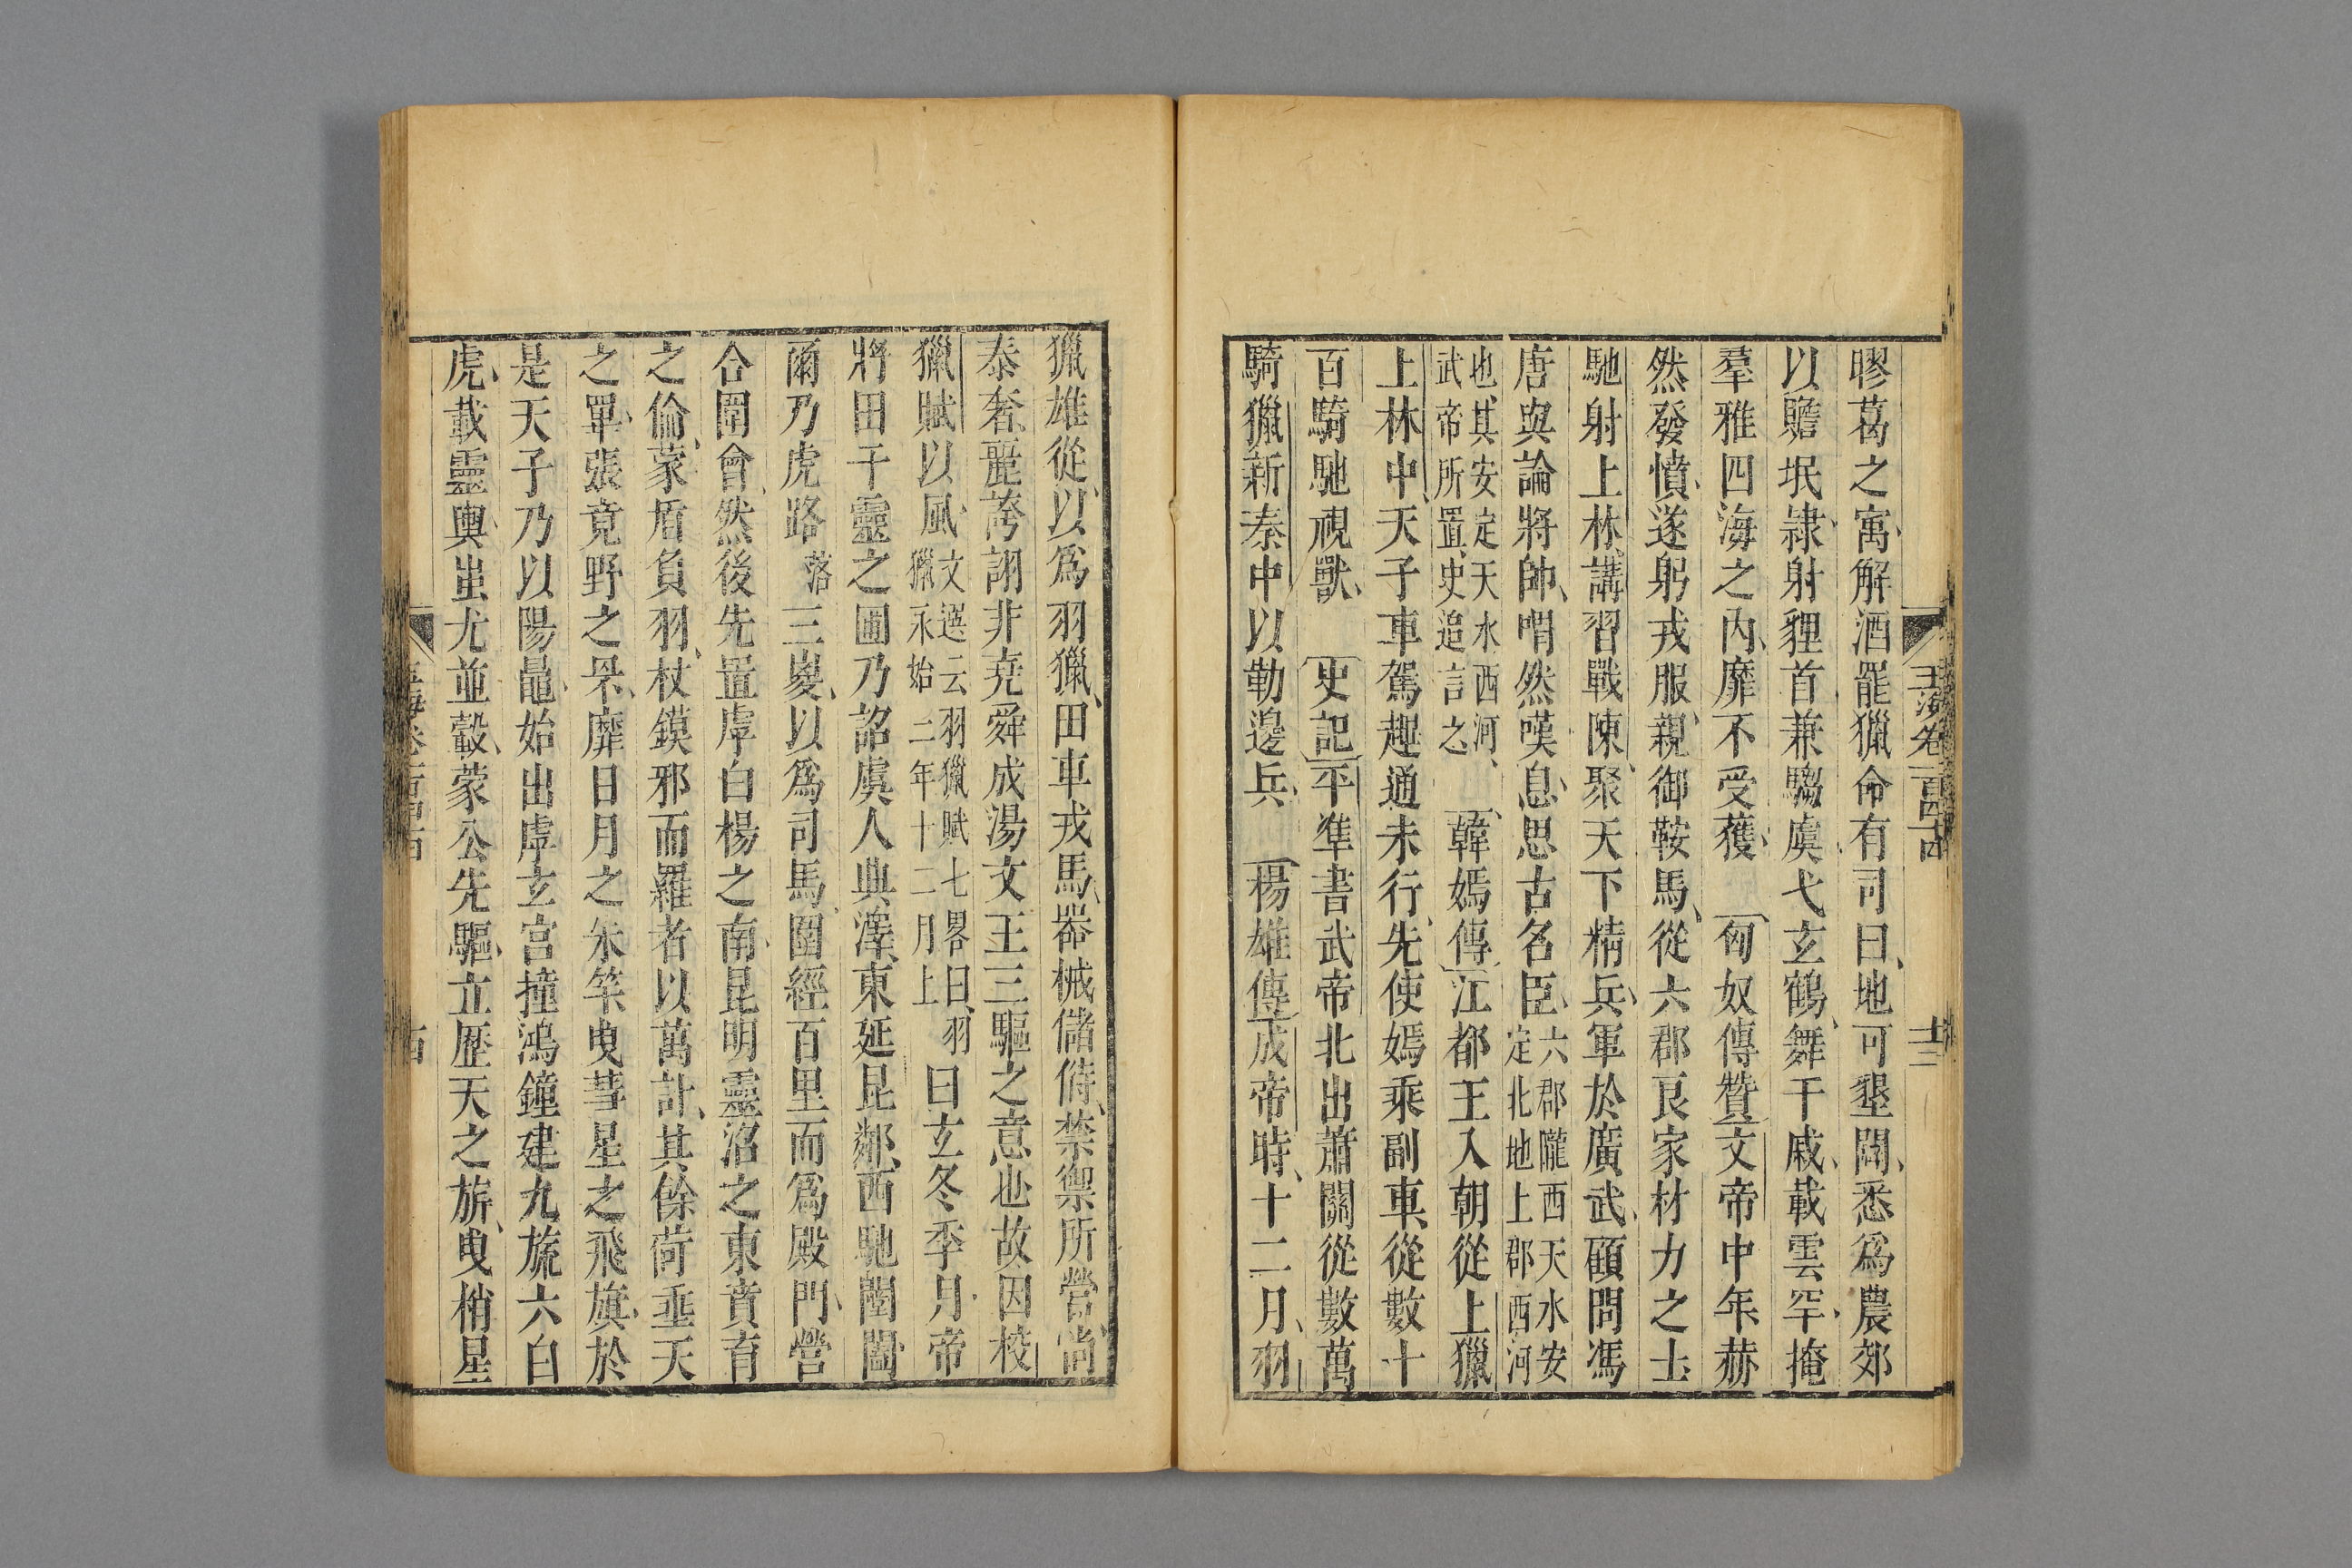 膠葛之寓解酒罷獵命有司曰地可墾闢悉爲農郊
以贍垊隷射貍首兼騶虞弋玄鶴舞干戚載雲罕掩
羣雅四海之內靡不受獲　匈奴傳贊文帝中年赫
然發憤遂躬戎服親御鞍馬從六郡良家材力之士
馳射上林講習戰陳聚天下精兵軍於廣武顧問馮
唐與論將帥喟然嘆息思古名臣六郡隴西天水安
定北地上郡西河
也其安定天水西河
武帝所置史追言之　韓嫣傳江都王入朝從上獵
上林中天子車駕趣通未行先使嫣乘副車從數十
百騎馳視獸　史記平準書武帝北出蕭關從數萬
騎獵新秦中以勒邊兵　楊雄傳成帝時十二月羽
玉海卷一百四十四
十三
獵雄從以爲羽獵田車戎馬器械儲偫禁禦所營尚
泰奢麗誇詡非堯舜成湯文王三驅之意也故因校
獵賦以風文選云羽獵賦七畧曰羽
獵永始二年十二月上曰玄冬季月帝
將田于靈之囿乃詔虞人典澤東延昆鄰西馳閶闔
爾乃虎路落三嵏以爲司馬圍經百里而爲殿門營
合圍會然後先置虖白楊之南昆明靈沼之東賁育
之倫蒙盾負羽杖鏌邪而羅者以萬計其餘荷垂天
之罼張竟野之罘靡日月之朱竿曳彗星之飛旗於
是天子乃以陽鼂始出虖玄宮撞鴻鐘建九旒六白
虎載靈輿蚩尤並轂蒙公先驅立歷天之旂曳梢星